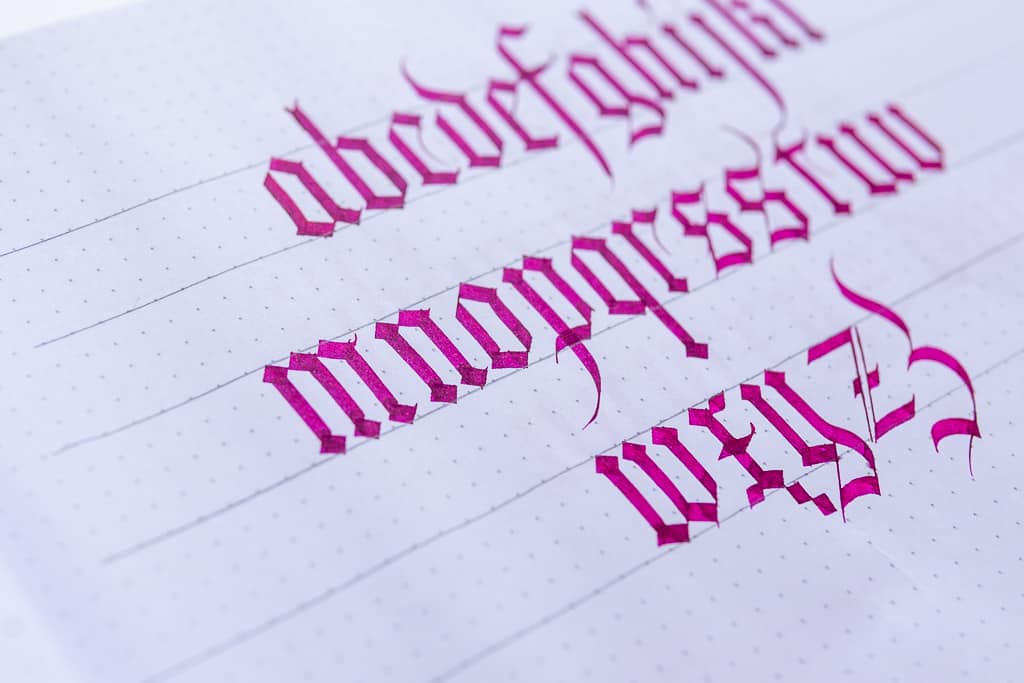 abcdefghijkl
mnopqrsstuv
wxyzz